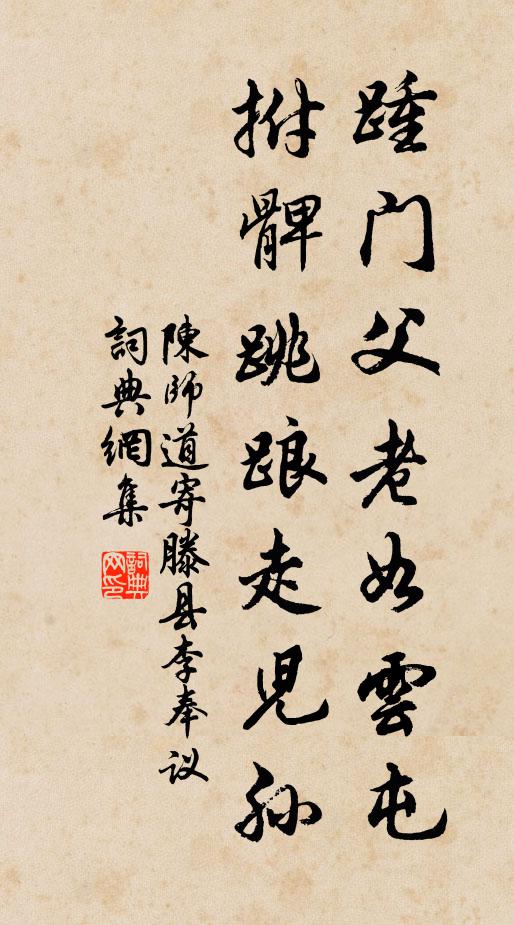 踵门父老如雲屯
拊髀跳踉走児孙
陳師道寄滕县李奉议
詞典網集
詞典网印